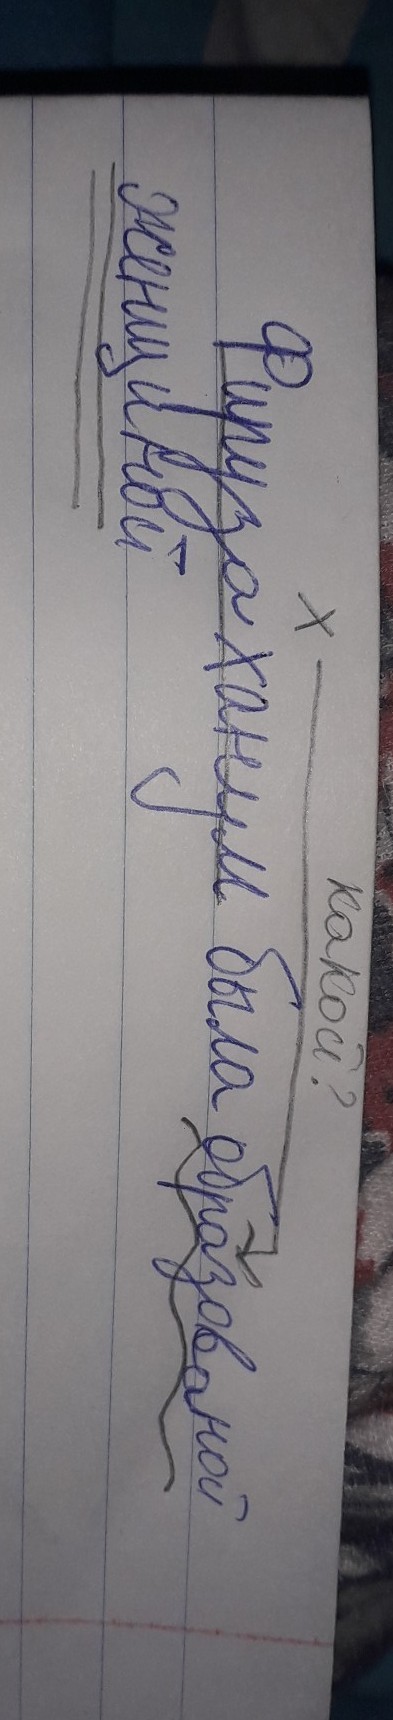 х какой?
Фируза ханум была образованой
женщиной